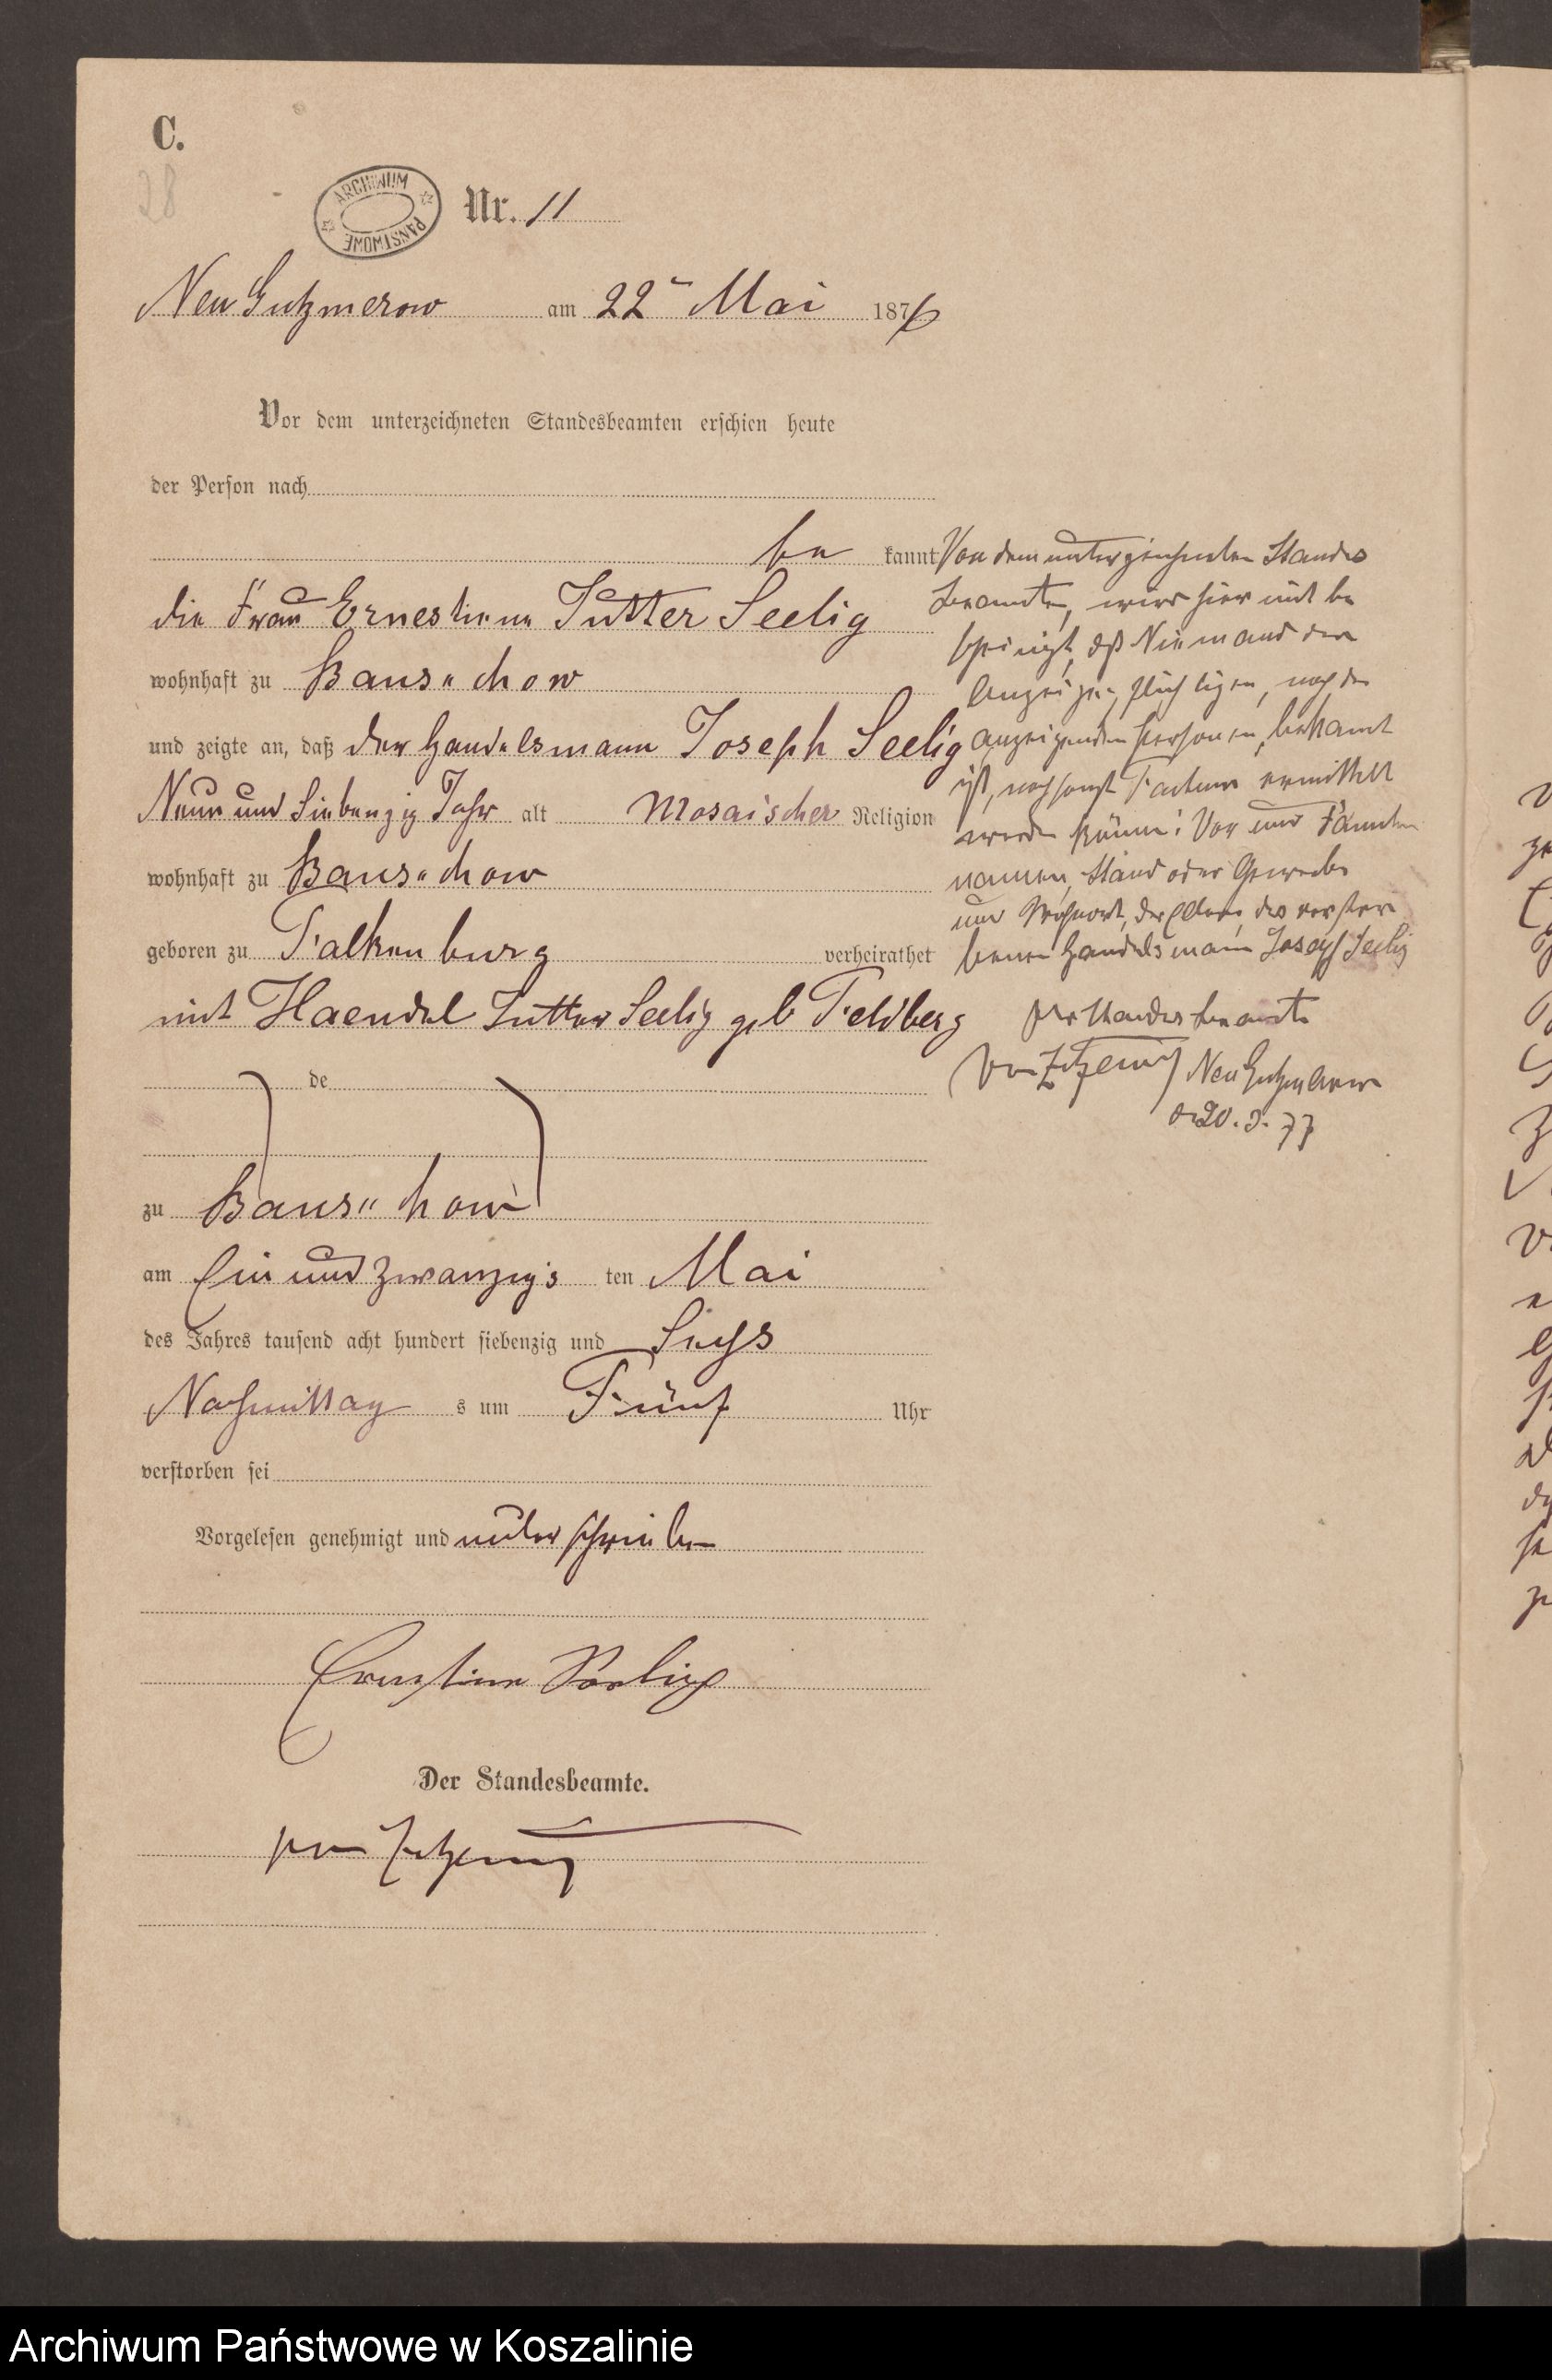 C.
28
ARCHIWUM PAŃSTWOWE
Nr. 11
Neu Gutzmerow am 22ten Mai 1876
Vor dem unterzeichneten Standesbeamten erschien heute
der Person nach
be kannt
die Frau Ernestiene Sutter Seelig
wohnhaft zu Bansechow
und zeigte an, daß der Handelsmann Joseph Seelig
Neun und Siebenzig Jahr alt Mosaischer Religion
wohnhaft zu Bansechow
geboren zu Falkenburg verheirathet
mit Haendel Sutter Seelig geb Feldberg
de
zu Bansechow
am Ein und zwanzigs ten Mai
des Jahres tausend acht hundert siebenzig und Sechs
Nachmittag s um Fünf Uhr
verstorben sei
Vorgelesen genehmigt und unterschrieben
Ernestine Seelig
Der Standesbeamte.
von
Von dem unterzeichneten Standes
beamten, wird hier mit be
scheinigt, daß Niemand den
Anzeige, pflichtigen, noch den
anzeigenden Personen, bekannt
ist, noch sonst ermittelt
werden können: Vor und Familien
namen, Stand oder Gewerbe
und Wohnort, der Eltern des verstor
benen Handelsmann Joseph Seelig
Der Standesbeamte
von Neu Gutzmerow
d 20. 3. 77
Archiwum Państwowe w Koszalinie